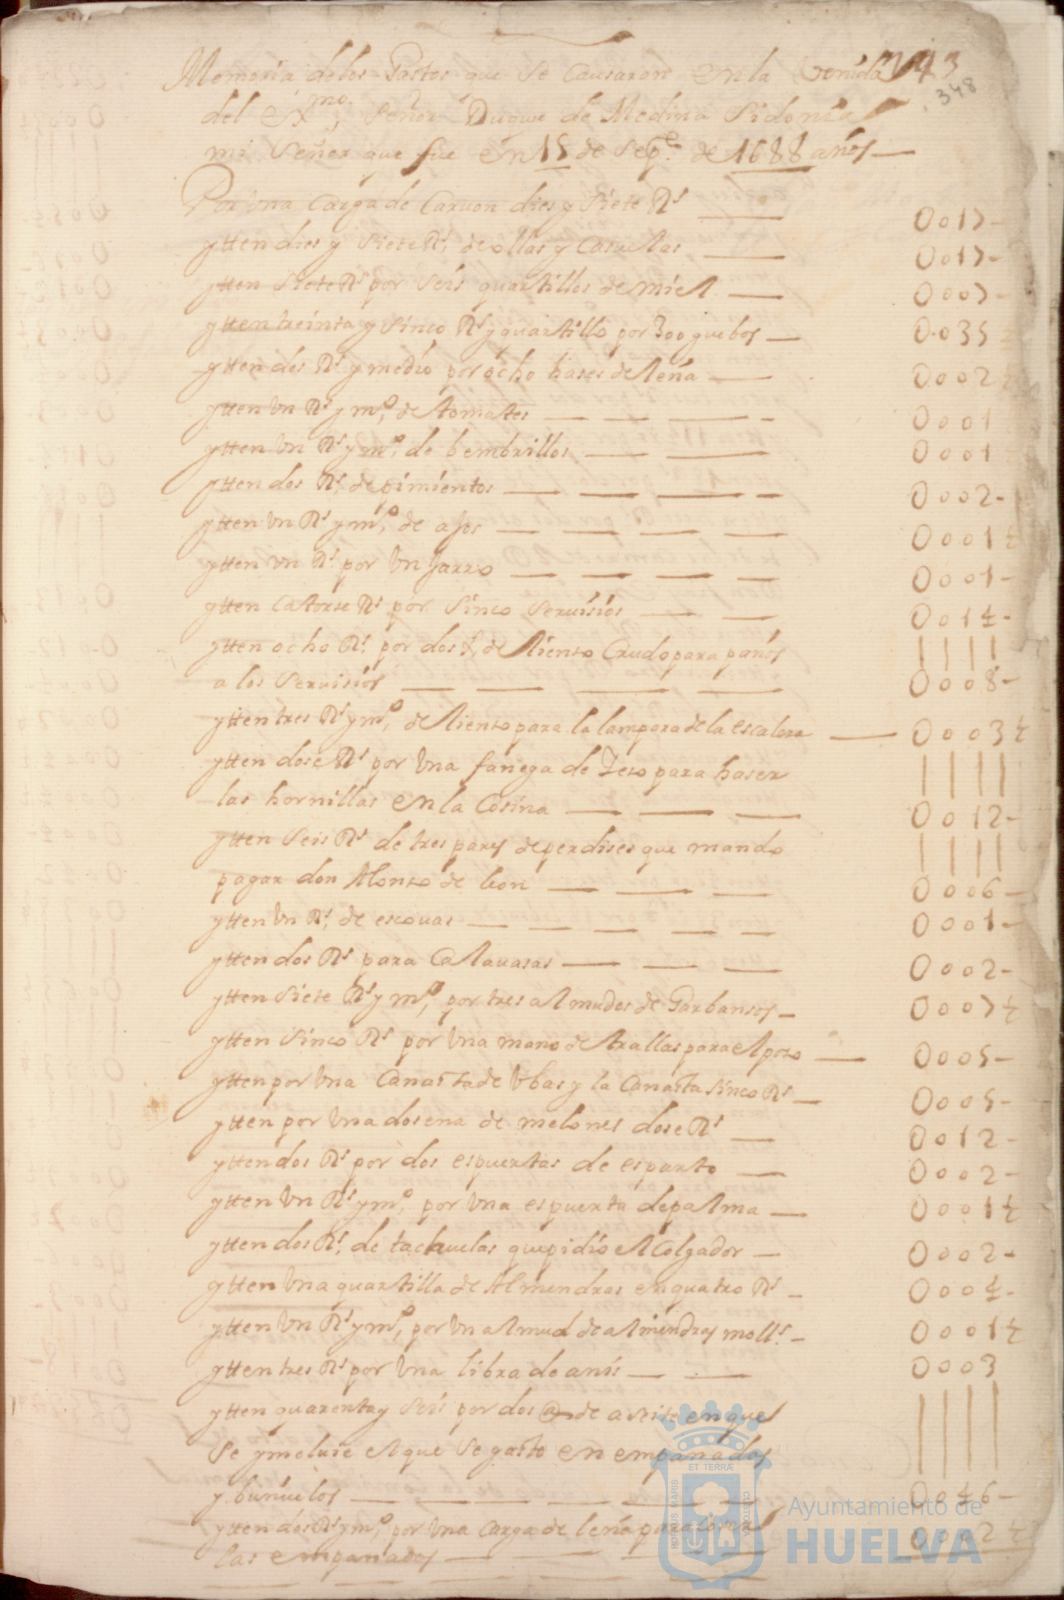 Memoria de los Gastos que se Causaron en la Venida 343
348
del Exmo. Señor Duque de Medina Sidonia
mi Señor que fue en 15 de Sepe. de 1688 años
Por Una Carga de Carvon dies y siete Rs 0017
ytten dies y siete Rs. de ollas y Casuelas 0017
ytten siete Rs por seis quartillos de miel 0007
ytten treinta y sinco Rs y quartillo por 300 guebos 0035
ytten dos Rs y medio por ocho hases de leña 0002½
ytten Un Rs y mº. de tomates 0001
ytten Un Rs y mº. de bembrillos 0001
ytten dos Rs. de pimientos 0002
ytten Un Rs y mº. de ajos 0001½
ytten Un Rs. por Un Jarro 0001
ytten Catorse Rs por sinco servisios 0014
ytten ocho Rs. por dos de lienso Crudo para paños
a los servisios 0008
ytten tres Rs y mº. de lienso para la lampara de la escalera 0003½
ytten dose Rs por Una fanega de Jeso para haser
las hornillas en la Cosina 0012
ytten seis Rs de tres pares de perdises que mando
pagar don Alonso de leon 0006
ytten Un Rs. de escovas 0001
ytten dos Rs para Calavasas 0002
ytten siete Rs y mº. por tres almudes de Garbansos 0007½
ytten sinco Rs por Una mano de trallas para el poso 0005
ytten por Una Canasta de Ubas y la Canasta sinco Rs 0005
ytten por Una dosena de melones dose Rs 0012
ytten dos Rs por dos espuertas de esparto 0002
ytten Un Rs y mº. por Una espuerta de palma 0001½
ytten dos Rs. de tachuelas que pidio el Colgador 0002
ytten Una quartilla de Almendras en quatro Rs 0004
ytten Un Rs y mº. por Un almud de almendras molls. 0001½
ytten tres Rs por Una libra de anis 0003
ytten quarenta y seis por dos @ de aseite en que
se yncluie el que se gasto en empanadas
y buñuelos 0046
ytten dos Rs y mº. por Una Carga de leña para Coser 0002½
las empanadas
ET TERRÆ
PORTUS MARIS
CUSTODIA
Ayuntamiento de
HUELVA